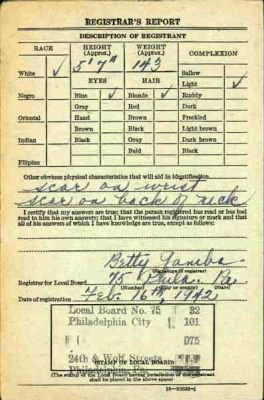 REGISTRAR'S REPORT
DESCRIPTION OF REGISTRANT
RACE HEIGHT (Approx.) WEIGHT (Approx.) COMPLEXION
5' 7" 143 Sallow
White ✓ EYES HAIR Light ✓
Negro Blue ✓ Blonde ✓ Ruddy
Gray Red Dark
Oriental Hazel Brown Freckled
Brown Black Light brown
Indian Black Gray Dark brown
Bald Black
Filipino
Other obvious physical characteristics that will aid in identification
scar on wrist
scar on back of neck
I certify that my answers are true; that the person registered has read or has had
read to him his own answers; that I have witnessed his signature or mark and that
all of his answers of which I have knowledge are true, except as follows:
Betty
(Signature of registrar)
Registrar for Local Board 75 Phila. Pa.
(Number) (City or county) (State)
Date of registration Feb. 16th, 1942
Local Board No. 75 32
Philadelphia City 101
075
24th & Wolf Streets
Philadelphia Pa.
(STAMP OF LOCAL BOARD)
(The stamp of the Local Board having jurisdiction of the registrant
shall be placed in the above space)